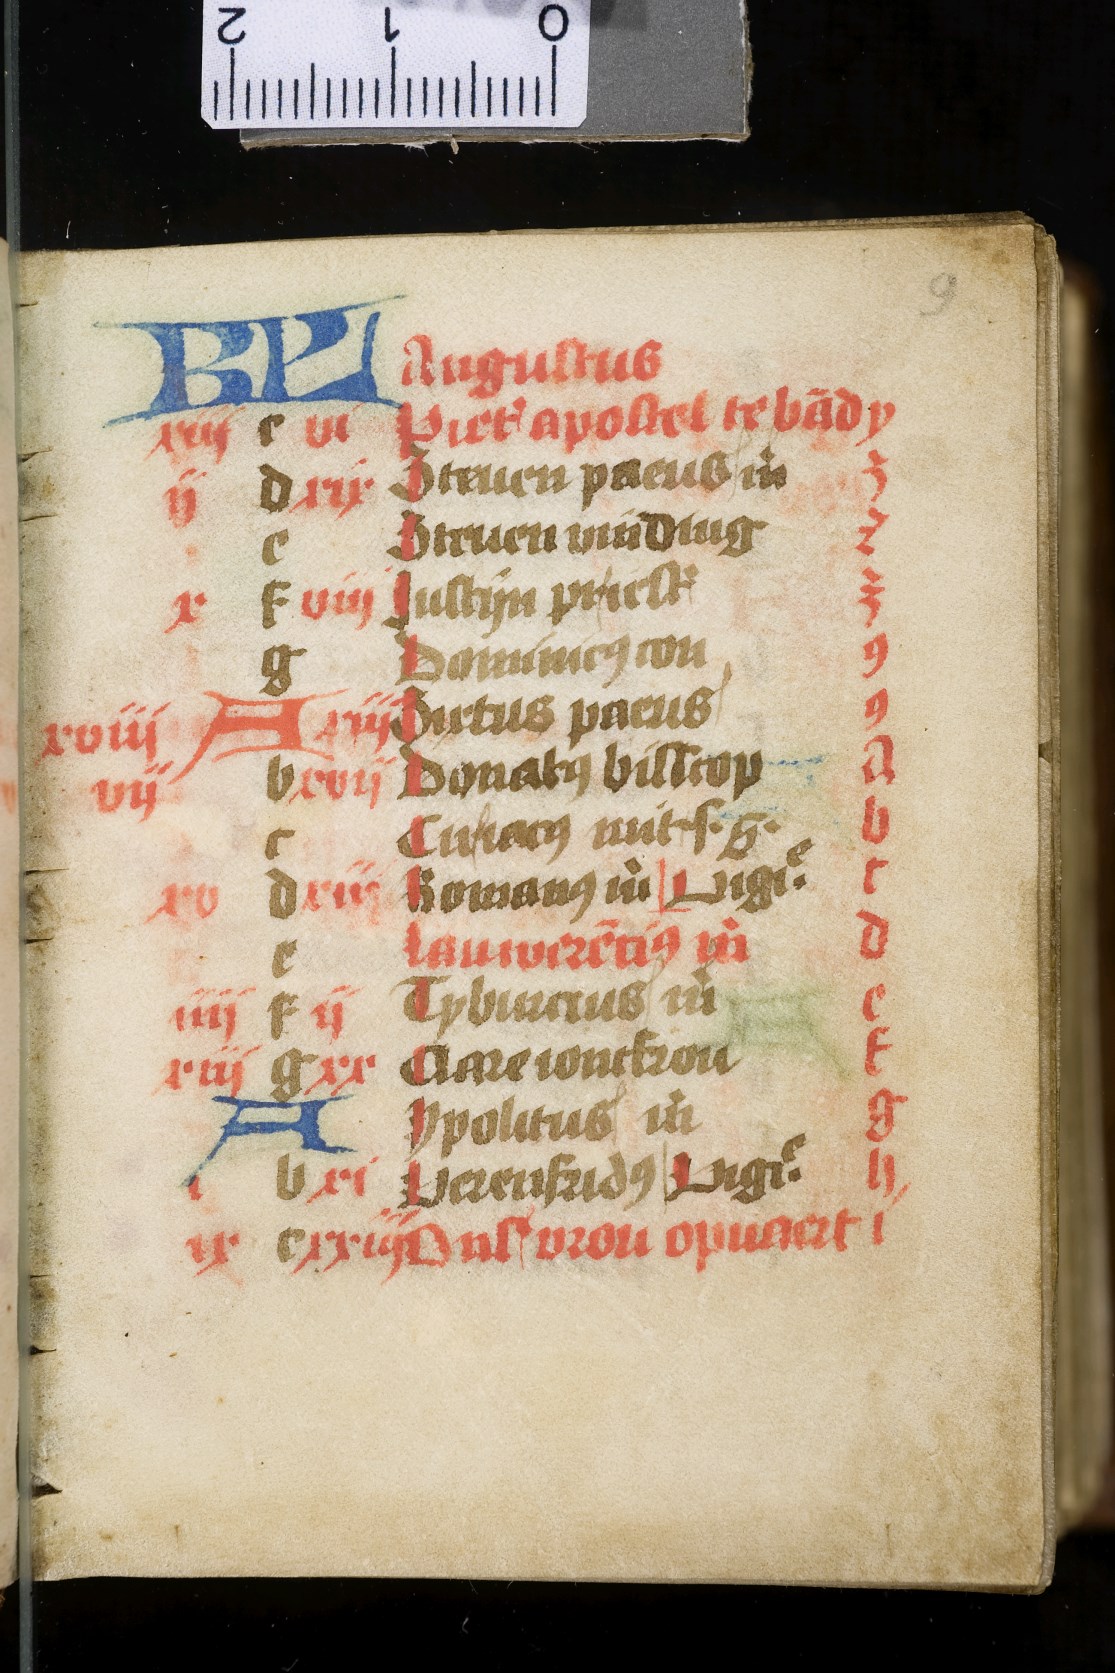 2 1 0
9
KL Augustus
xiij c vi Piet' apostel te bād y
ij d xix Steuen paeus m̄ ʒ
e Steuen vinding z
x f viij Justijn priest' ʒ
g Dominicꝯ con 9
xviij A xiij Sixtus paeus 9
vij b xvij Donatꝯ bisscop A
c Ciriacꝯ mit. s. g. b
xv d xiij Romanꝯ m̄ Uigiᵉ c
e Lauwerētiꝯ m̄ d
iiij f ij Tyburcius m̄ e
xiij g xx Clare ioncfrou f
A Ypolitus m̄ g
i b xi Uerenfridꝯ Uigiᵉ h
ix c xxiij Ons' vrou opuaert i